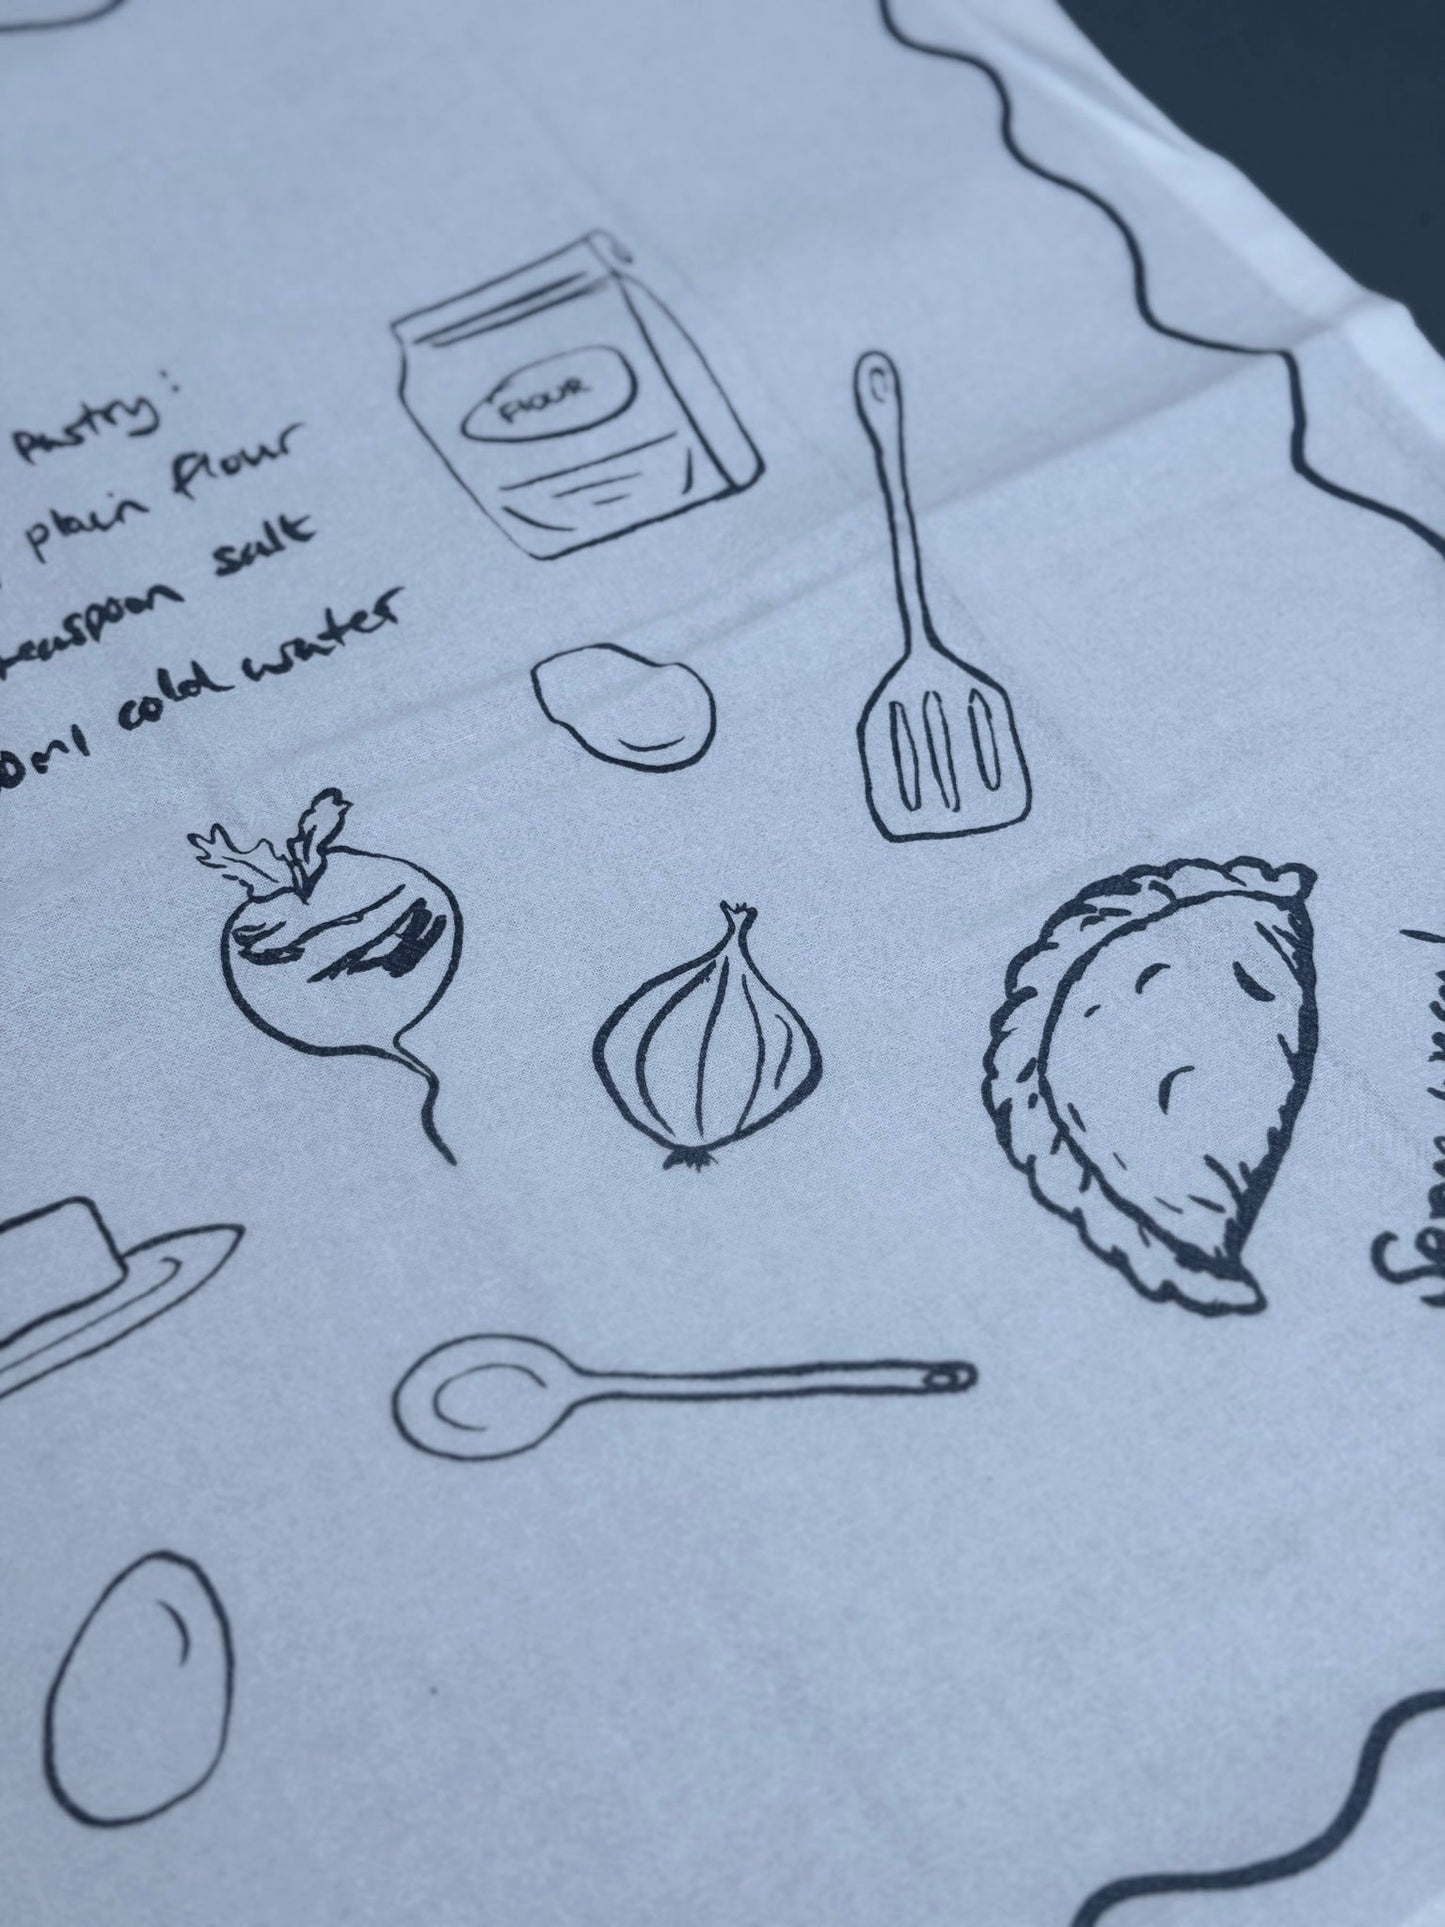 Pastry:
plain flour
teaspoon salt
0ml cold water
FLOUR